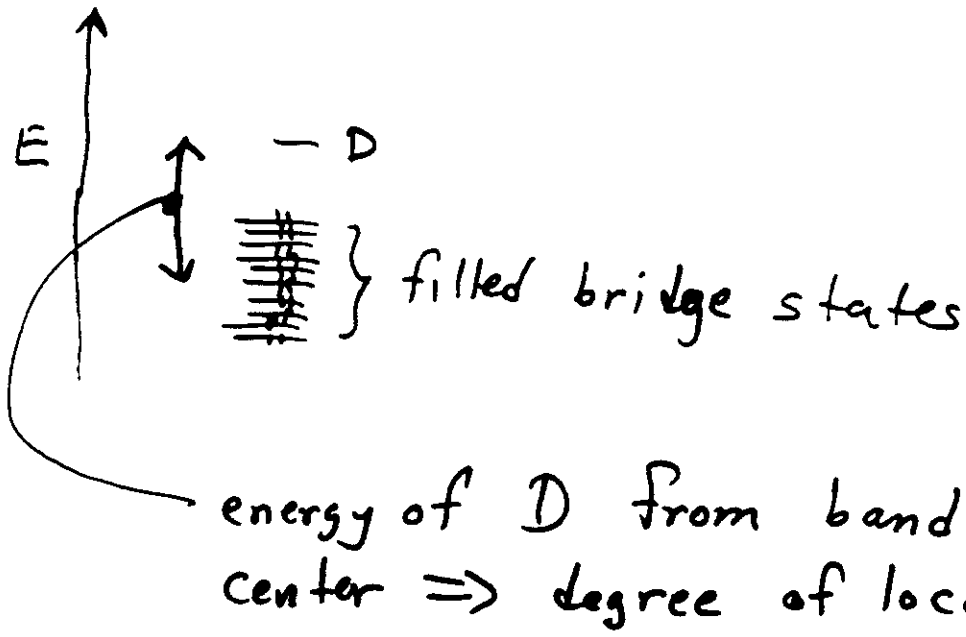 E
— D
} filled bridge states
energy of D from band
center => degree of loc